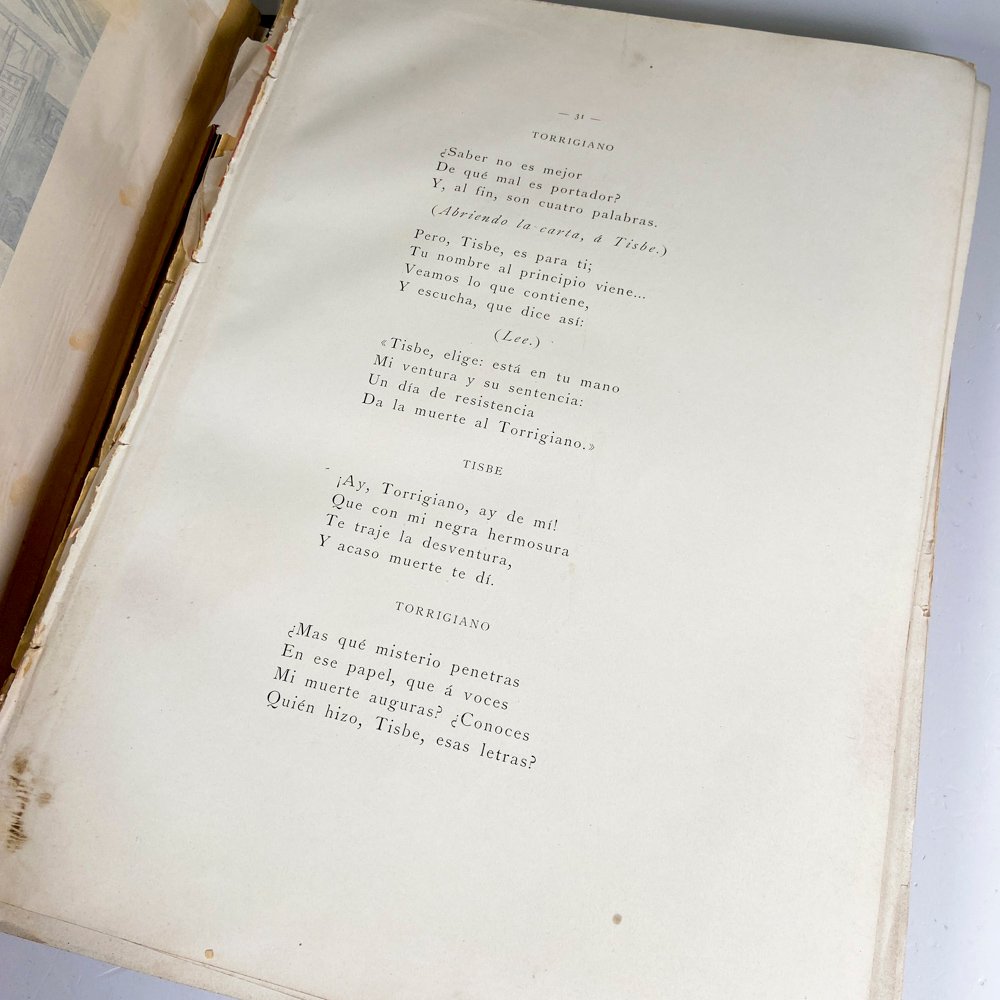 — 31 —
TORRIGIANO
¿Saber no es mejor
De qué mal es portador?
Y, al fin, son cuatro palabras.
(Abriendo la carta, á Tisbe.)
Pero, Tisbe, es para ti;
Tu nombre al principio viene...
Veamos lo que contiene,
Y escucha, que dice así:
(Lee.)
«Tisbe, elige: está en tu mano
Mi ventura y su sentencia:
Un día de resistencia
Da la muerte al Torrigiano.»
TISBE
¡Ay, Torrigiano, ay de mí!
Que con mi negra hermosura
Te traje la desventura,
Y acaso muerte te dí.
TORRIGIANO
¿Mas qué misterio penetras
En ese papel, que á voces
Mi muerte auguras? ¿Conoces
Quién hizo, Tisbe, esas letras?